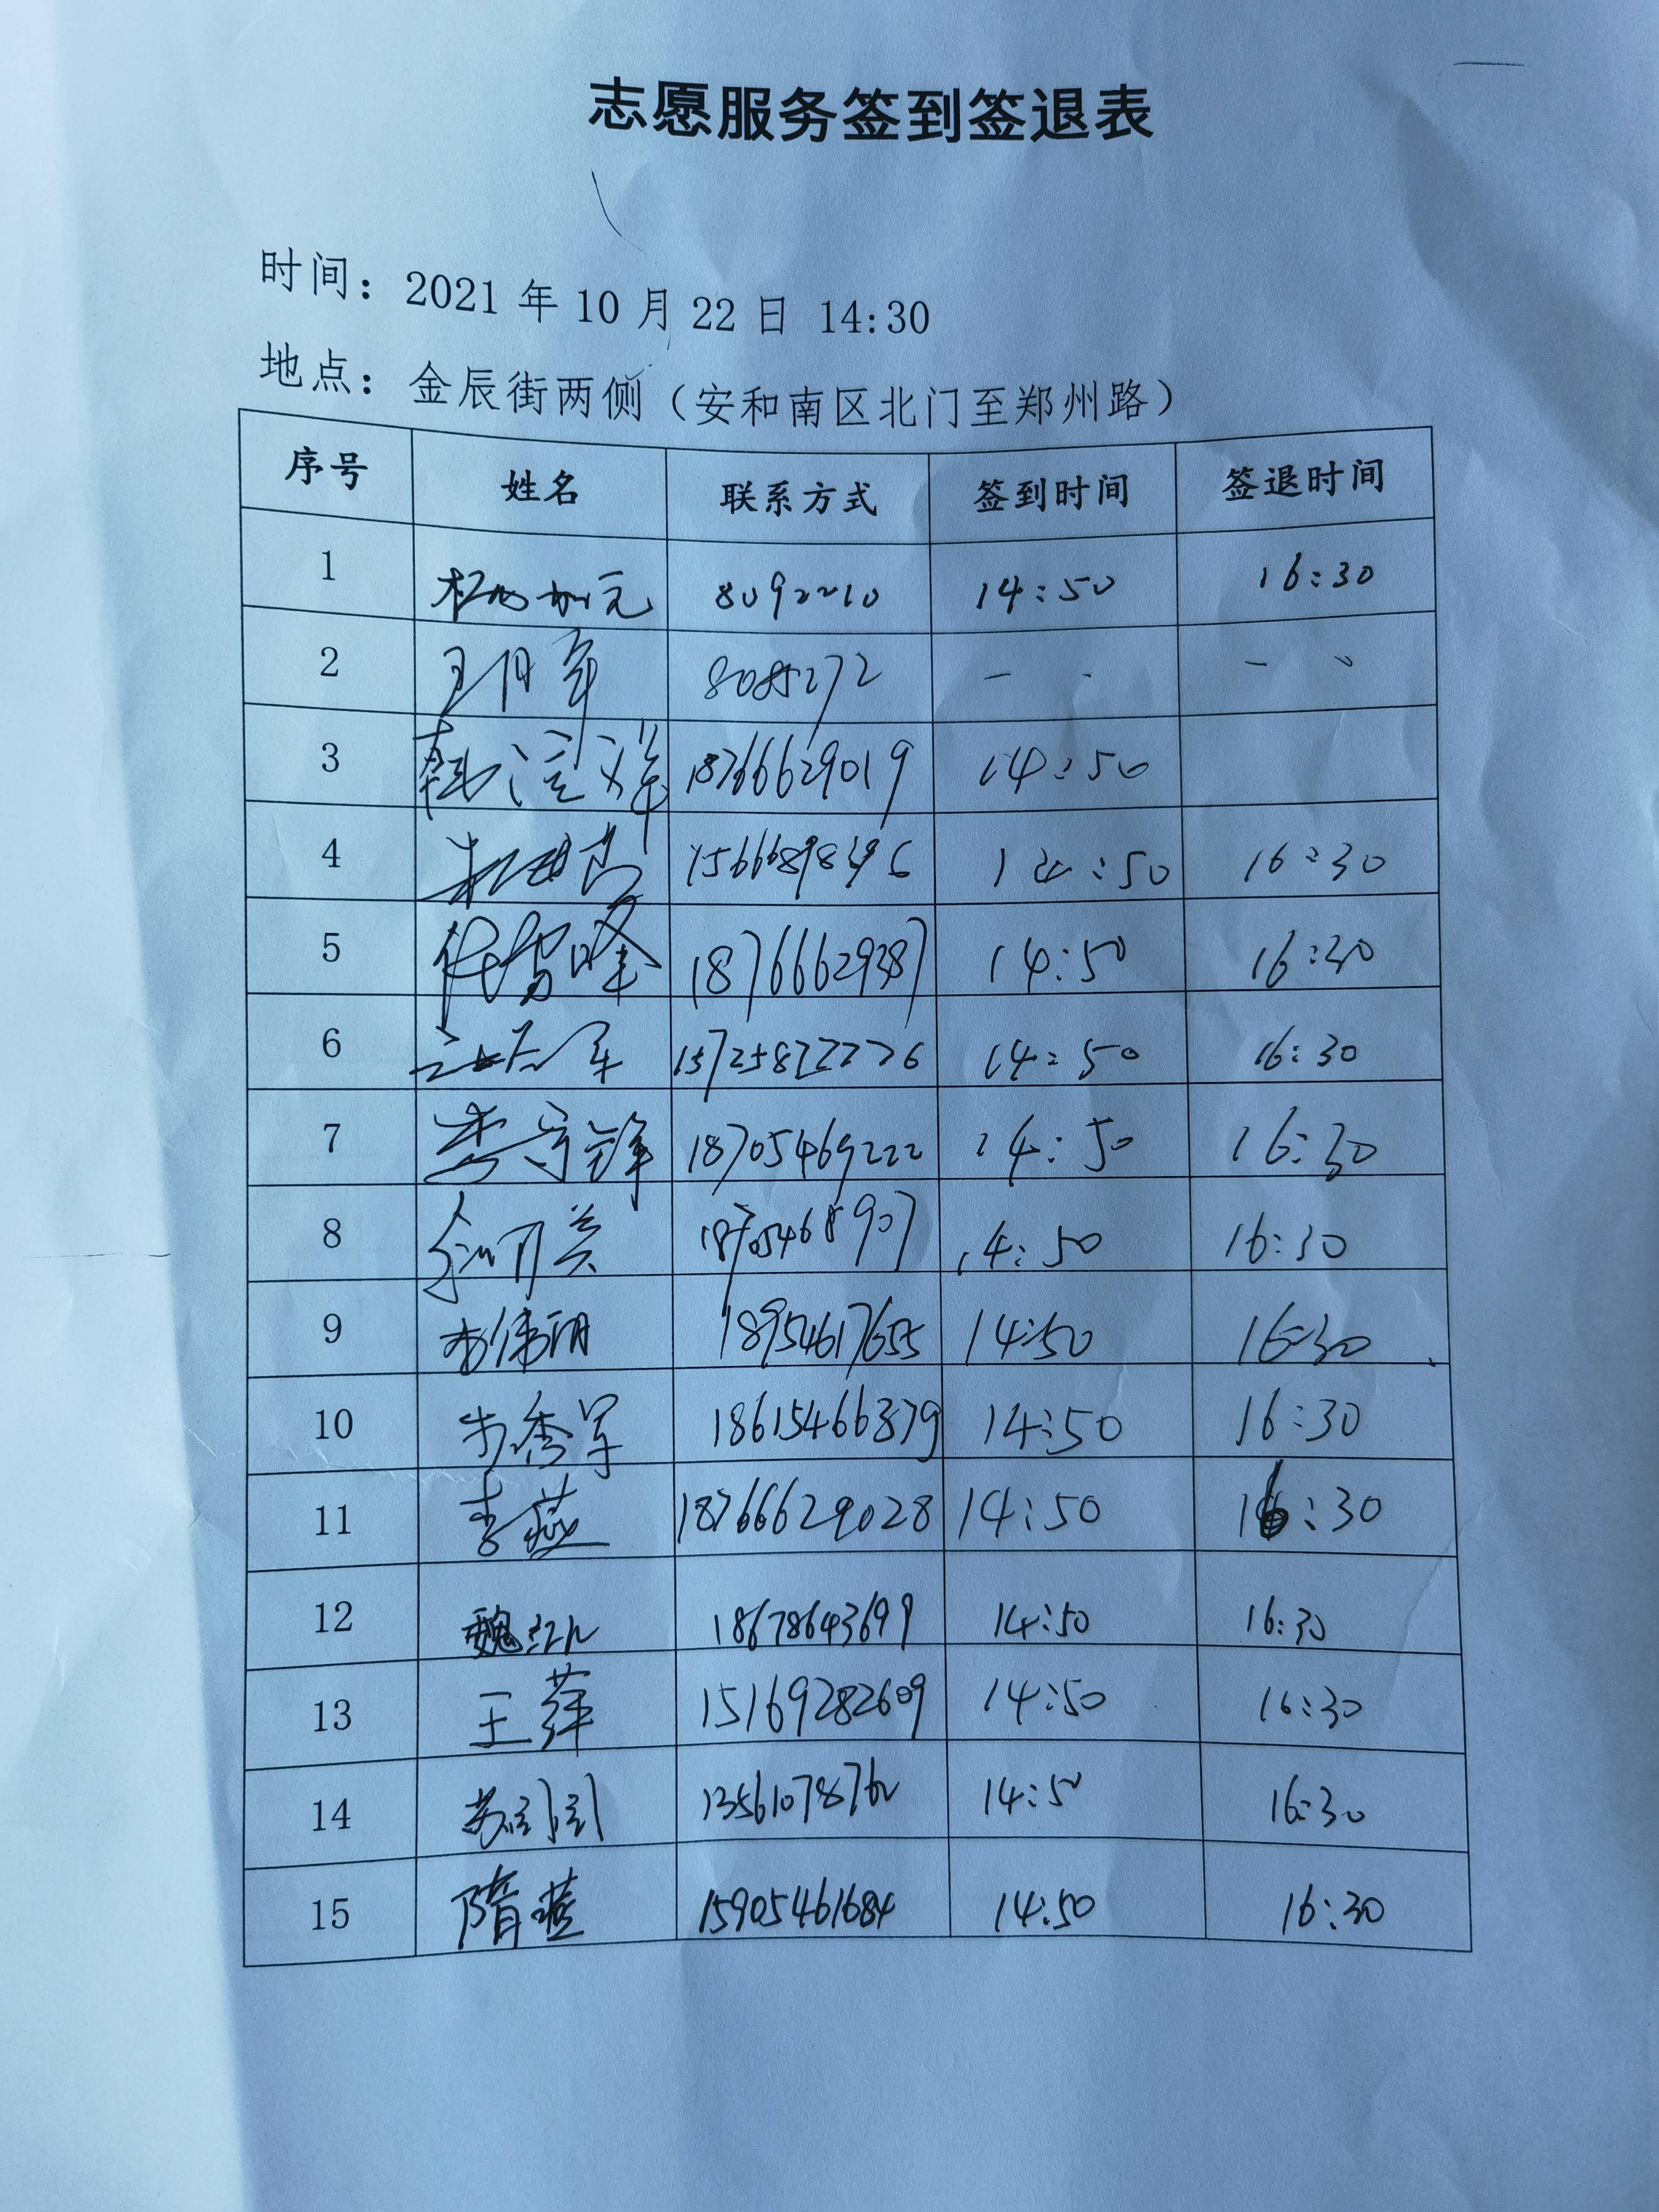 志愿服务签到签退表
时间：2021年10月22日 14:30
地点：金辰街两侧（安和南区北门至郑州路）
序号 姓名 联系方式 签到时间 签退时间
1 8092210 14:50 16:30
2 8085272 — -  — 、
3 18766629019 14:50
4 14:50 16:30
5 18766629387 14:50 16:30
6 14:50 16:30
7 李守锋 18705469222 14:50 16:30
8 18705468907 14:50 16:30
9 18954617655 14:50 16:30
10 步秀军 18615466379 14:50 16:30
11 李燕 18766629028 14:50 16:30
12 魏红 18678643699 14:50 16:30
13 王萍 15169282609 14:50 16:30
14 苏 14:50 16:30
15 隋燕 15905461684 14:50 16:30